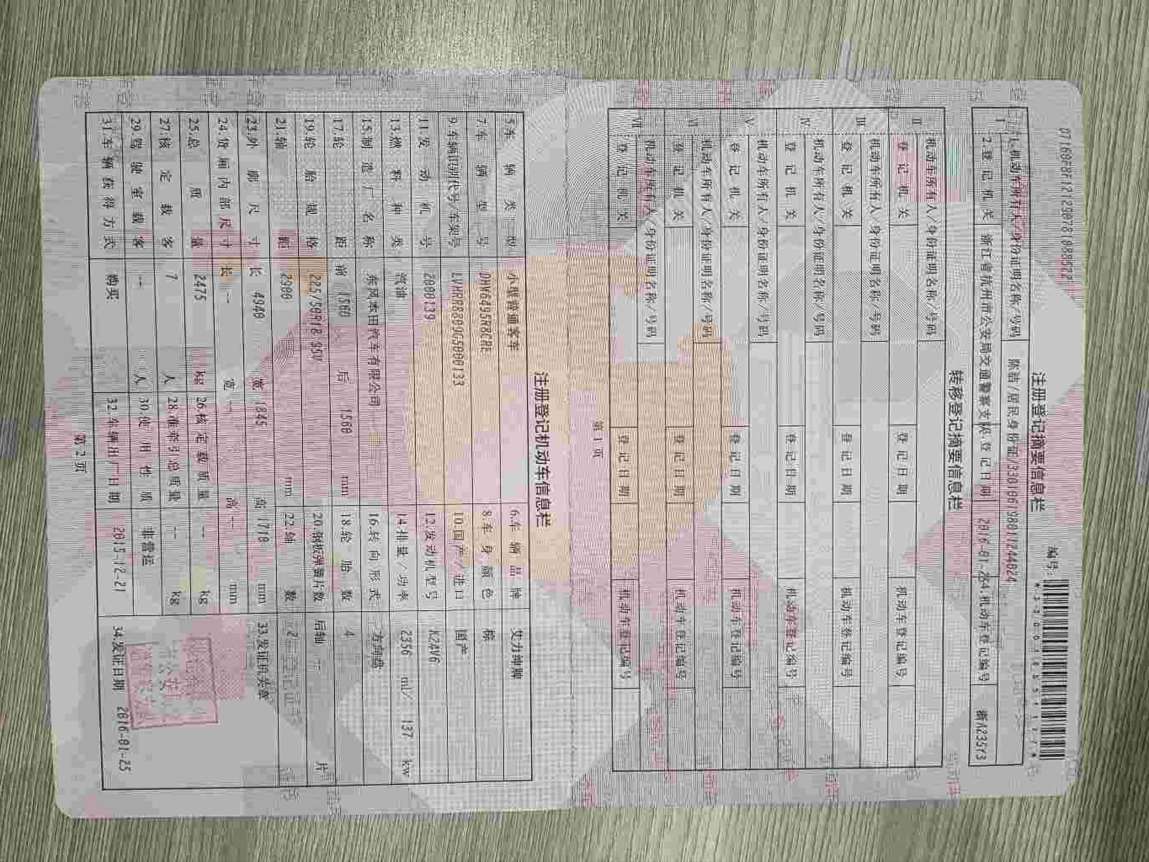 注册登记摘要信息栏
编号:
Ⅰ
1.机动车所有人/身份证明名称/号码 陈洁/居民身份证/330106198011244024
2.登记机关 浙江省杭州市公安局交通警察支队 3.登记日期 2016-01-25 4.机动车登记编号 浙A235Y3
转移登记摘要信息栏
Ⅱ
机动车所有人/身份证明名称/号码
登记机关 登记日期 机动车登记编号
Ⅲ
机动车所有人/身份证明名称/号码
登记机关 登记日期 机动车登记编号
Ⅳ
机动车所有人/身份证明名称/号码
登记机关 登记日期 机动车登记编号
Ⅴ
机动车所有人/身份证明名称/号码
登记机关 登记日期 机动车登记编号
Ⅵ
机动车所有人/身份证明名称/号码
登记机关 登记日期 机动车登记编号
Ⅶ
机动车所有人/身份证明名称/号码
登记机关 登记日期 机动车登记编号
第1页
注册登记机动车信息栏
5.车辆类型 小型普通客车 6.车辆品牌 艾力绅牌
7.车辆型号 DHW6495R8CRE 8.车身颜色 棕
9.车辆识别代号/车架号 LVHRR8809G5000133 10.国产/进口 国产
11.发动机号 2000139 12.发动机型号 K24V6
13.燃料种类 汽油 14.排量/功率 2356 ml/ 137 kw
15.制造厂名称 东风本田汽车有限公司 16.转向形式 方向盘
17.轮距 前 1560 后 1560 mm 18.轮胎数 4
19.轮胎规格 225/50R18 95V 20.钢板弹簧片数 后轴 -- 片
21.轴距 2900 mm 22.轴数 2
23.外廓尺寸 长 4940 宽 1845 高 1710 mm 33.发证机关章
24.货厢内部尺寸 长 -- 宽 -- 高 -- mm
25.总质量 2475 kg 26.核定载质量 -- kg
27.核定载客 7 人 28.准牵引总质量 -- kg
29.驾驶室载客 -- 人 30.使用性质 非营运
31.车辆获得方式 购买 32.车辆出厂日期 2015-12-21 34.发证日期 2016-01-25
第2页